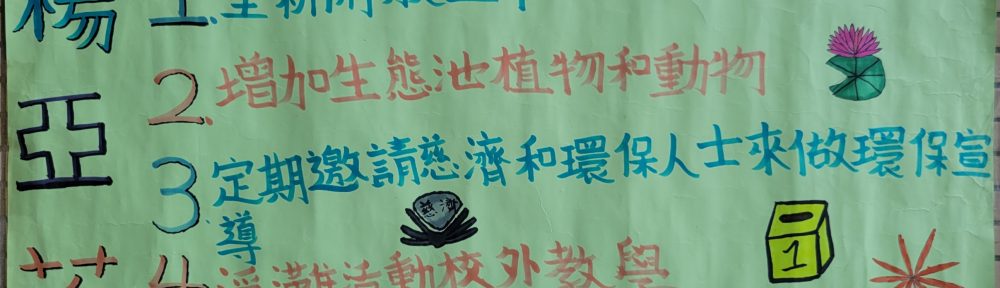 楊
亞
1.重新開放
2.增加生態池植物和動物
3定期邀請慈濟和環保人士來做環保宣
導
慈濟
1
4淨灘活動校外教學